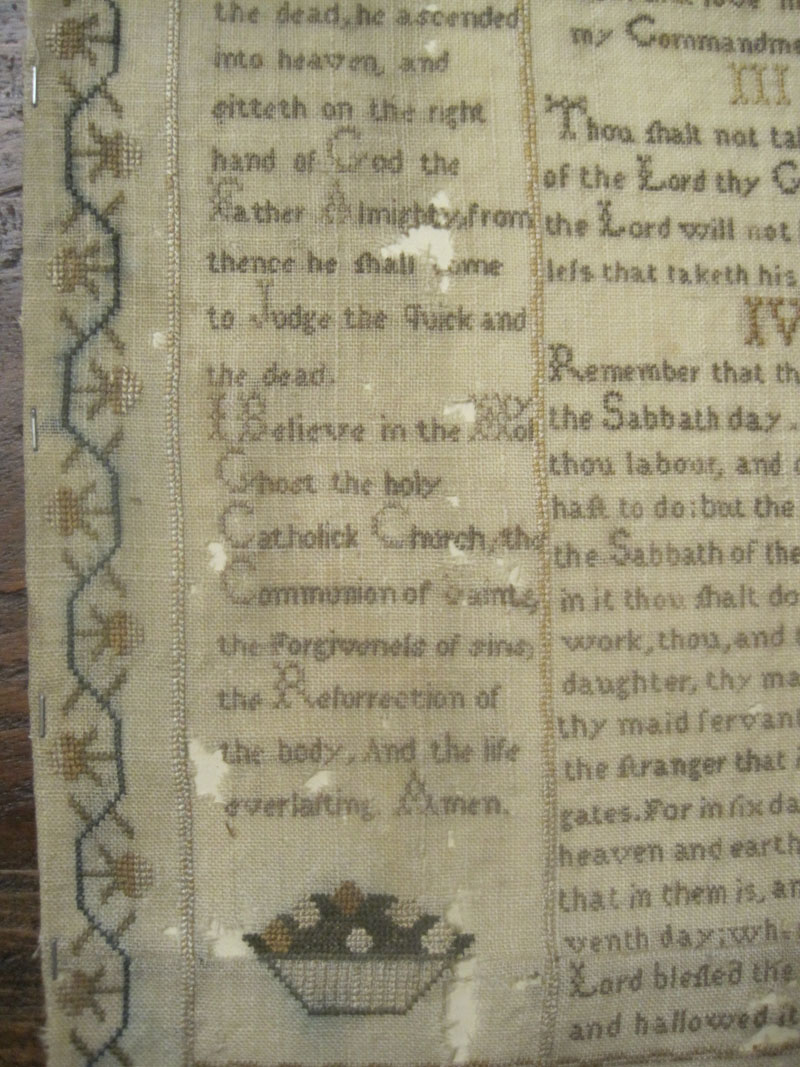 the dead, he ascended
into heaven, and
sitteth on the right
hand of God the
Father Almighty, from
thence he ſhall come
to Judge the Quick and
the dead.
I Believe in the Hol
Ghost the holy
Catholick Church, the
Communion of Saints,
the Forgiveneſs of sins,
the Reſurrection of
the body, And the life
everlaſting. Amen.
my Commandme
III
Thou ſhalt not tak
of the Lord thy G
the Lord will not
leſs that taketh his
IV
Remember that th
the Sabbath day.
thou labour, and
haſt to do: but the
the Sabbath of the
in it thou ſhalt do
work, thou, and
daughter, thy ma
thy maid ſervant
the ſtranger that i
gates. For in ſix da
heaven and earth
that in them is, an
venth day; wh
Lord bleſſed the
and hallowed it